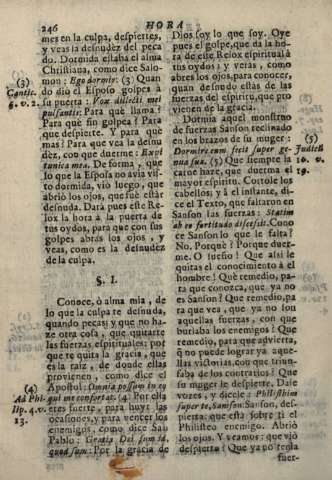 246 HORA
mes en la culpa, despiertes,
y veas la desnudez del peca
do. Dormida estaba el alma
Christiana, como dice Salo-
mon: Ego dormio: (3) Quan
do dió el Esposo golpes à
su puerta: Vox dilecti mei
pulsantis: Para què llama?
Para què sin golpea? Para
que despierte. Y para què
mas? Para que vea la desnu
dèz, con que duerme:
tunica mea. De forma, que
lo que la Esposa no avia vis-
to dormida, viò luego, que
abriò los ojos, que fue estàr
desnuda. Darà pues este Re-
lox la hora à la puerta de
tus oydos, para que con sus
golpes abras los ojos, y
veas, como es la desnudèz
de la culpa.
(3)
Cantic.
§. I.
Conoce, ò alma mia, de
lo que la culpa te desnuda,
quando pecas; y que no ha-
ze otra cosa, que quitarte
las fuerzas espirituales; por
que te quita la gracia, que
es la raìz, de donde ellas
provienen, como dice el
Apostol: Omnia possum in eo
qui me confortat: (4) Por ella
eres fuerte, para huir las
ocasiones, y para vencer los
enemigos, como dice San
Pablo: Gratia Dei sum id,
quod sum: Por la gracia de
(4)
Ad Phi-
lip. 4. v.
13.
Dios soy lo que soy. Oye
pues el golpe, que dà la ho-
ra de este Relox espiritual à
tus oydos; y veràs, como
abres los ojos, para conocer,
quan desnudo estàs de las
fuerzas del espiritu, que pro
vienen de la gracia.
Dormia aquel monstruo
de fuerzas Sanson reclinado
en los brazos de su muger:
Dormire eum fecit super ge-
nua sua. (5) Que siempre la
carne haze, que duerma el
mayor espiritu. Cortòle los
cabellos; y al instante, di-
ce el Texto, que faltaron en
Sanson las fuerzas: Statim
ab eo fortitudo discessit. Cono
ce Sanson lo que le falta?
No. Porquè? Porque duer-
me. O sueño! Que assi le
quitas el conocimiento à el
hombre! Què remedio, pa-
ra que conozca, que ya no
es Sanson? Que remedio, pa
ra que vea, que ya no son
aquellas fuerzas, con que
burlaba los enemigos? Que
remedio, para que advierta,
q̄ no puede lograr ya aque-
llas victorias, con que triun-
faba de los contrarios? Que
su muger le despierte. Dale
vozes, y dicele: Philisthim
super te, Samson: Sanson, des-
pierta: que està sobre ti el
Philisteo enemigo. Abriò
los ojos. Y veamos: que viò
despierto? Que ya no tenia
fuer-
(5)
Judic.
16. v.
19.